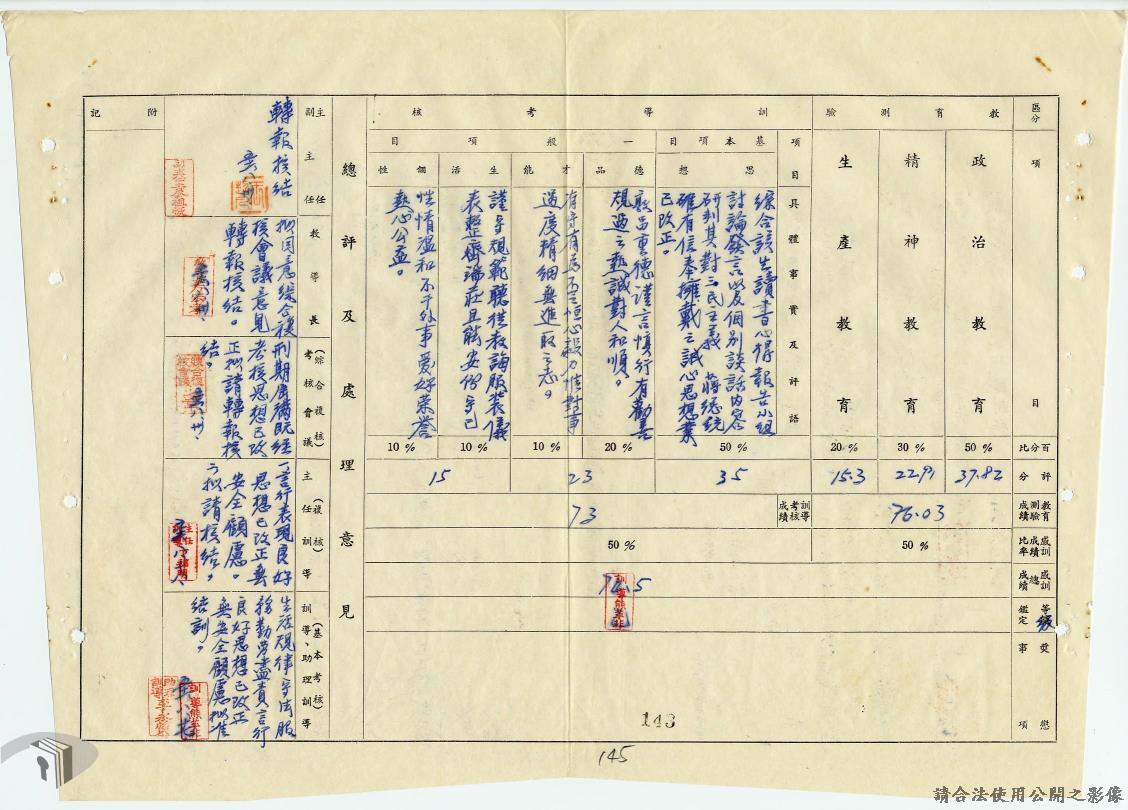 區分
項目
教育測驗
政治教育
精神教育
生產教育
訓導考核
項目
具體事實及評語
基本項目
一般項目
思想
品德
才能
生活
個性
綜合該生讀書心得報告小組
討論發言以及個別談話內容
研判其對三民主義 蔣總統
確有信奉擁戴之誠心思想業
已改正。
敦品重德謹言慎行有勸善
規過之熱誠對人和順。
有守有為不
過度精細無進取之志。
謹守規範聽從教誨服裝儀
表整齊端莊且能安份守己
性情溫和不干外事愛好榮譽
熱心公益。
百分比
50%
30%
20%
50%
20%
10%
10%
10%
評分
37.82
22.91
15.3
35
23
15
教育測驗成績
76.03
訓導考核成績
73
感訓成績比率
50%
50%
感訓總成績
74.5
等級鑑定
級
獎懲事項
總評及處理意見
(基本考核)
訓導、助理訓導
生活規律守法服
務勤勞盡責言行
良好思想已改正
無安全顧慮擬准
結訓。
(複核)
主任訓導
一、言行表現良好
思想已改正無
安全顧慮。
二、擬請核結。
(綜合複核)
考核會議
刑期屆滿既經
考核思想已改
正擬請轉報核
結。
教導長
擬同意綜合複
核會議意見
轉報核結。
主任
副主任
轉報核結
附記
143
145
請合法使用公開之影像